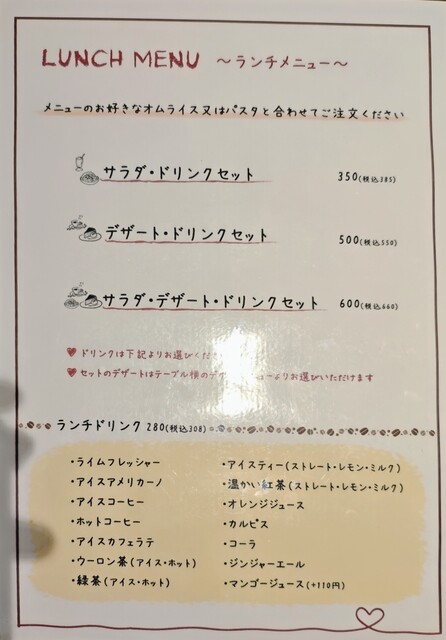 LUNCH MENU ～ランチメニュー～
メニューのお好きなオムライス又はパスタと合わせてご注文ください
サラダ・ドリンクセット 350(税込385)
デザート・ドリンクセット 500(税込550)
サラダ・デザート・ドリンクセット 600(税込660)
♥ ドリンクは下記よりお選びくだ
♥ セットのデザートはテーブル横のデ ューよりお選びいただけます
ランチドリンク 280(税込308)
・ライムフレッシャー
・アイスアメリカーノ
・アイスコーヒー
・ホットコーヒー
・アイスカフェラテ
・ウーロン茶(アイス・ホット)
・緑茶(アイス・ホット)
・アイスティー(ストレート・レモン・ミルク)
・温かい紅茶(ストレート・レモン・ミルク)
・オレンジジュース
・カルピス
・コーラ
・ジンジャーエール
・マンゴージュース(+110円)